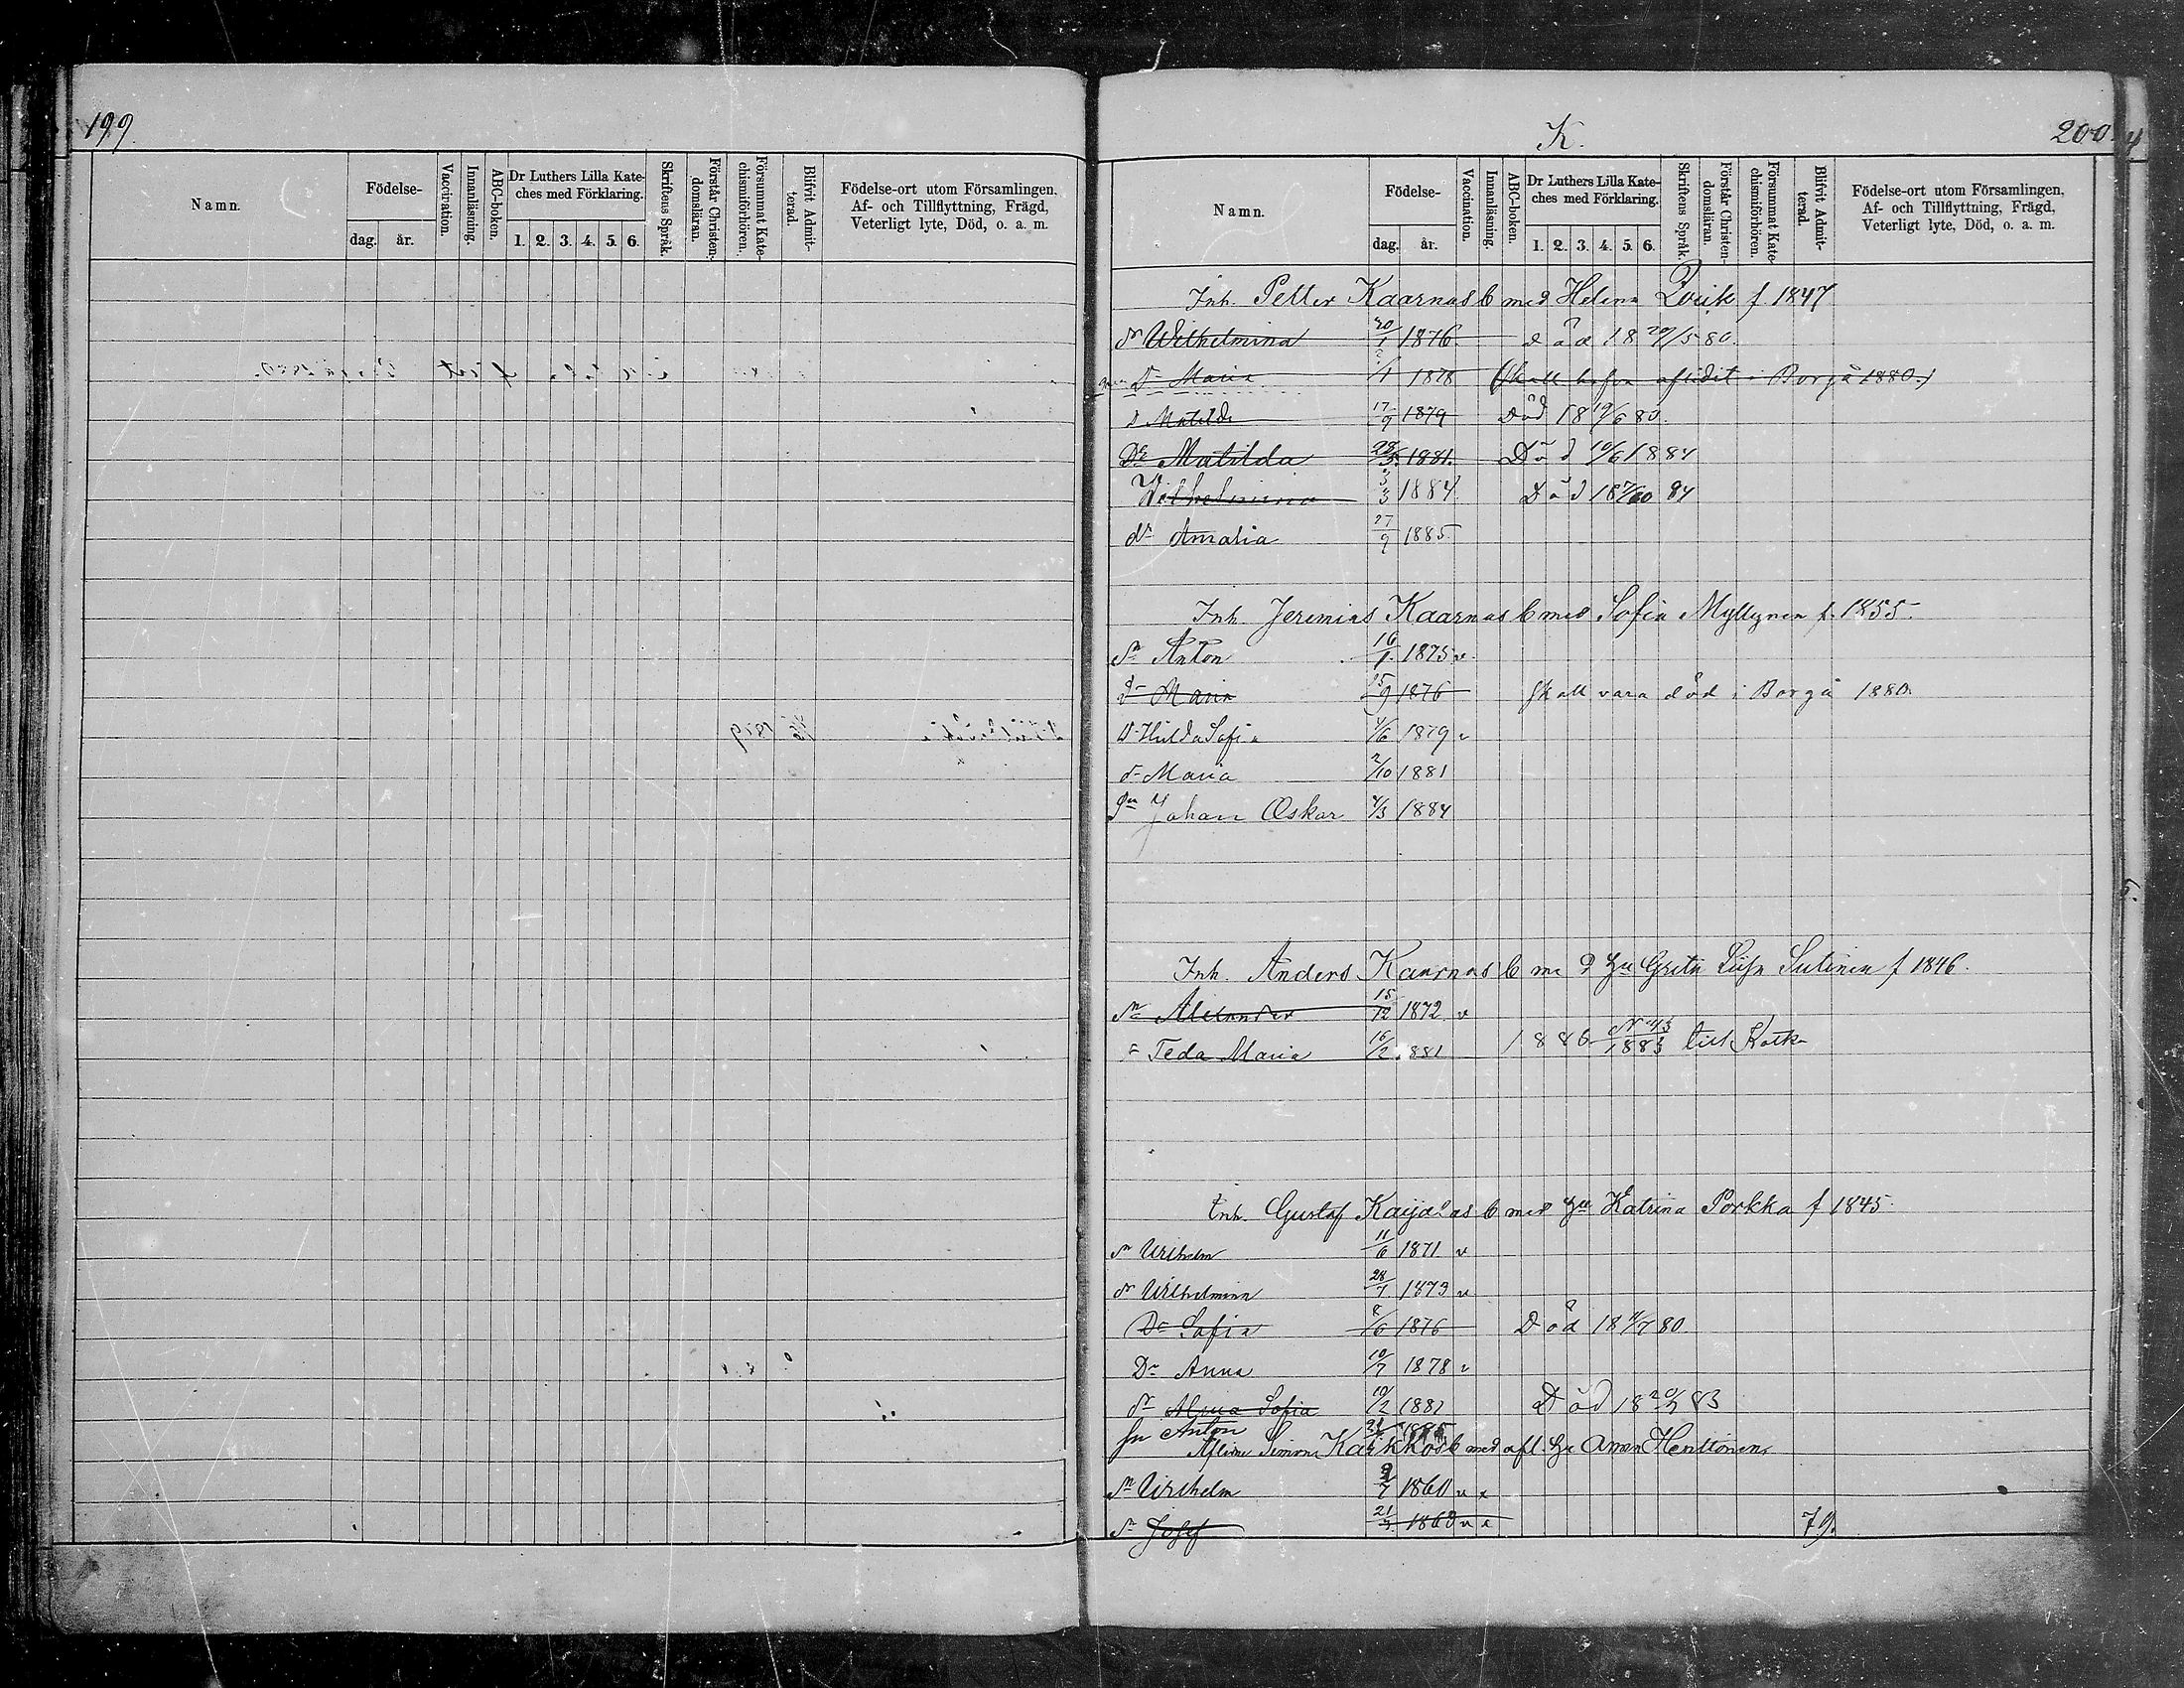 199.
Namn.
Födelse-
dag. år.
Vaccination.
Innanläsning.
ABC-boken.
Dr Luthers Lilla Kate-
ches med Förklaring.
1. 2. 3. 4. 5. 6.
Skriftens Språk.
Förstår Christen-
domsläran.
Försummat Kate-
chismiförhören.
Blifvit Admit-
terad.
Födelse-ort utom Församlingen,
Af- och Tillflyttning, Frägd,
Veterligt lyte, Död, o. a. m.
K.
200
Namn.
Födelse-
dag. år.
Vaccination.
Innanläsning.
ABC-boken.
Dr Luthers Lilla Kate-
ches med Förklaring.
1. 2. 3. 4. 5. 6.
Skriftens Språk.
Förstår Christen-
domsläran.
Försummat Kate-
chismiförhören.
Blifvit Admit-
terad.
Födelse-ort utom Församlingen,
Af- och Tillflyttning, Frägd,
Veterligt lyte, Död, o. a. m.
Inh. Petter Kaarnas b med Helena Qvick f. 1847
dr Wilhelmina 20/1 1876. död 18 29/5 80.
Dr Maria /1 1878 (Skall hafva aflidit i Borgå 1880.)
D Matilda 17/9 1879 Död 18 19/6 80.
Dr Matilda 28/3 1881. Död 10/6 1884
Wilhelmina 3/3 1884 Död 18 84
dr Amalia 27/9 1885
Inh. Jeremias Kaarnas b med Sofia Myllynen f. 1855.
Sn Anton 16/1. 1875 v.
Dr Maria 15/9 1876 Skall vara död i Borgå 1880.
Dr Hilda Sofia 4/6 1879 v
dr Maria 2/10 1881
Sn Johan Oskar 4/3 1884
Inh. Anders Kaarnas b med hu Greta Liisa Sutinen f 1846.
Sn Alexander 15/12 1872 v
Teda Maria 16/2 1881 1886 N 43/1883 till Kotka
Inh. Gustaf Kaijalas b med hu Katrina Porkka f 1845
sn Wilhelm 11/6 1871 v
dr Wilhelmina 28/1. 1873 v
Dr Sofia 8/6 1876 Död 18 4/7 80.
Dr Anna 10/7 1878 v
dr Alma Sofia 10/2 1881 Död 18 20/2 83
Sn Anton 1885
Aflidne Simon Karkkos b med afl. hu Anna Henttonen
Sn Wilhelm 9/7 1860 v x
Sn Josef 21/3. 1863 v x 79.